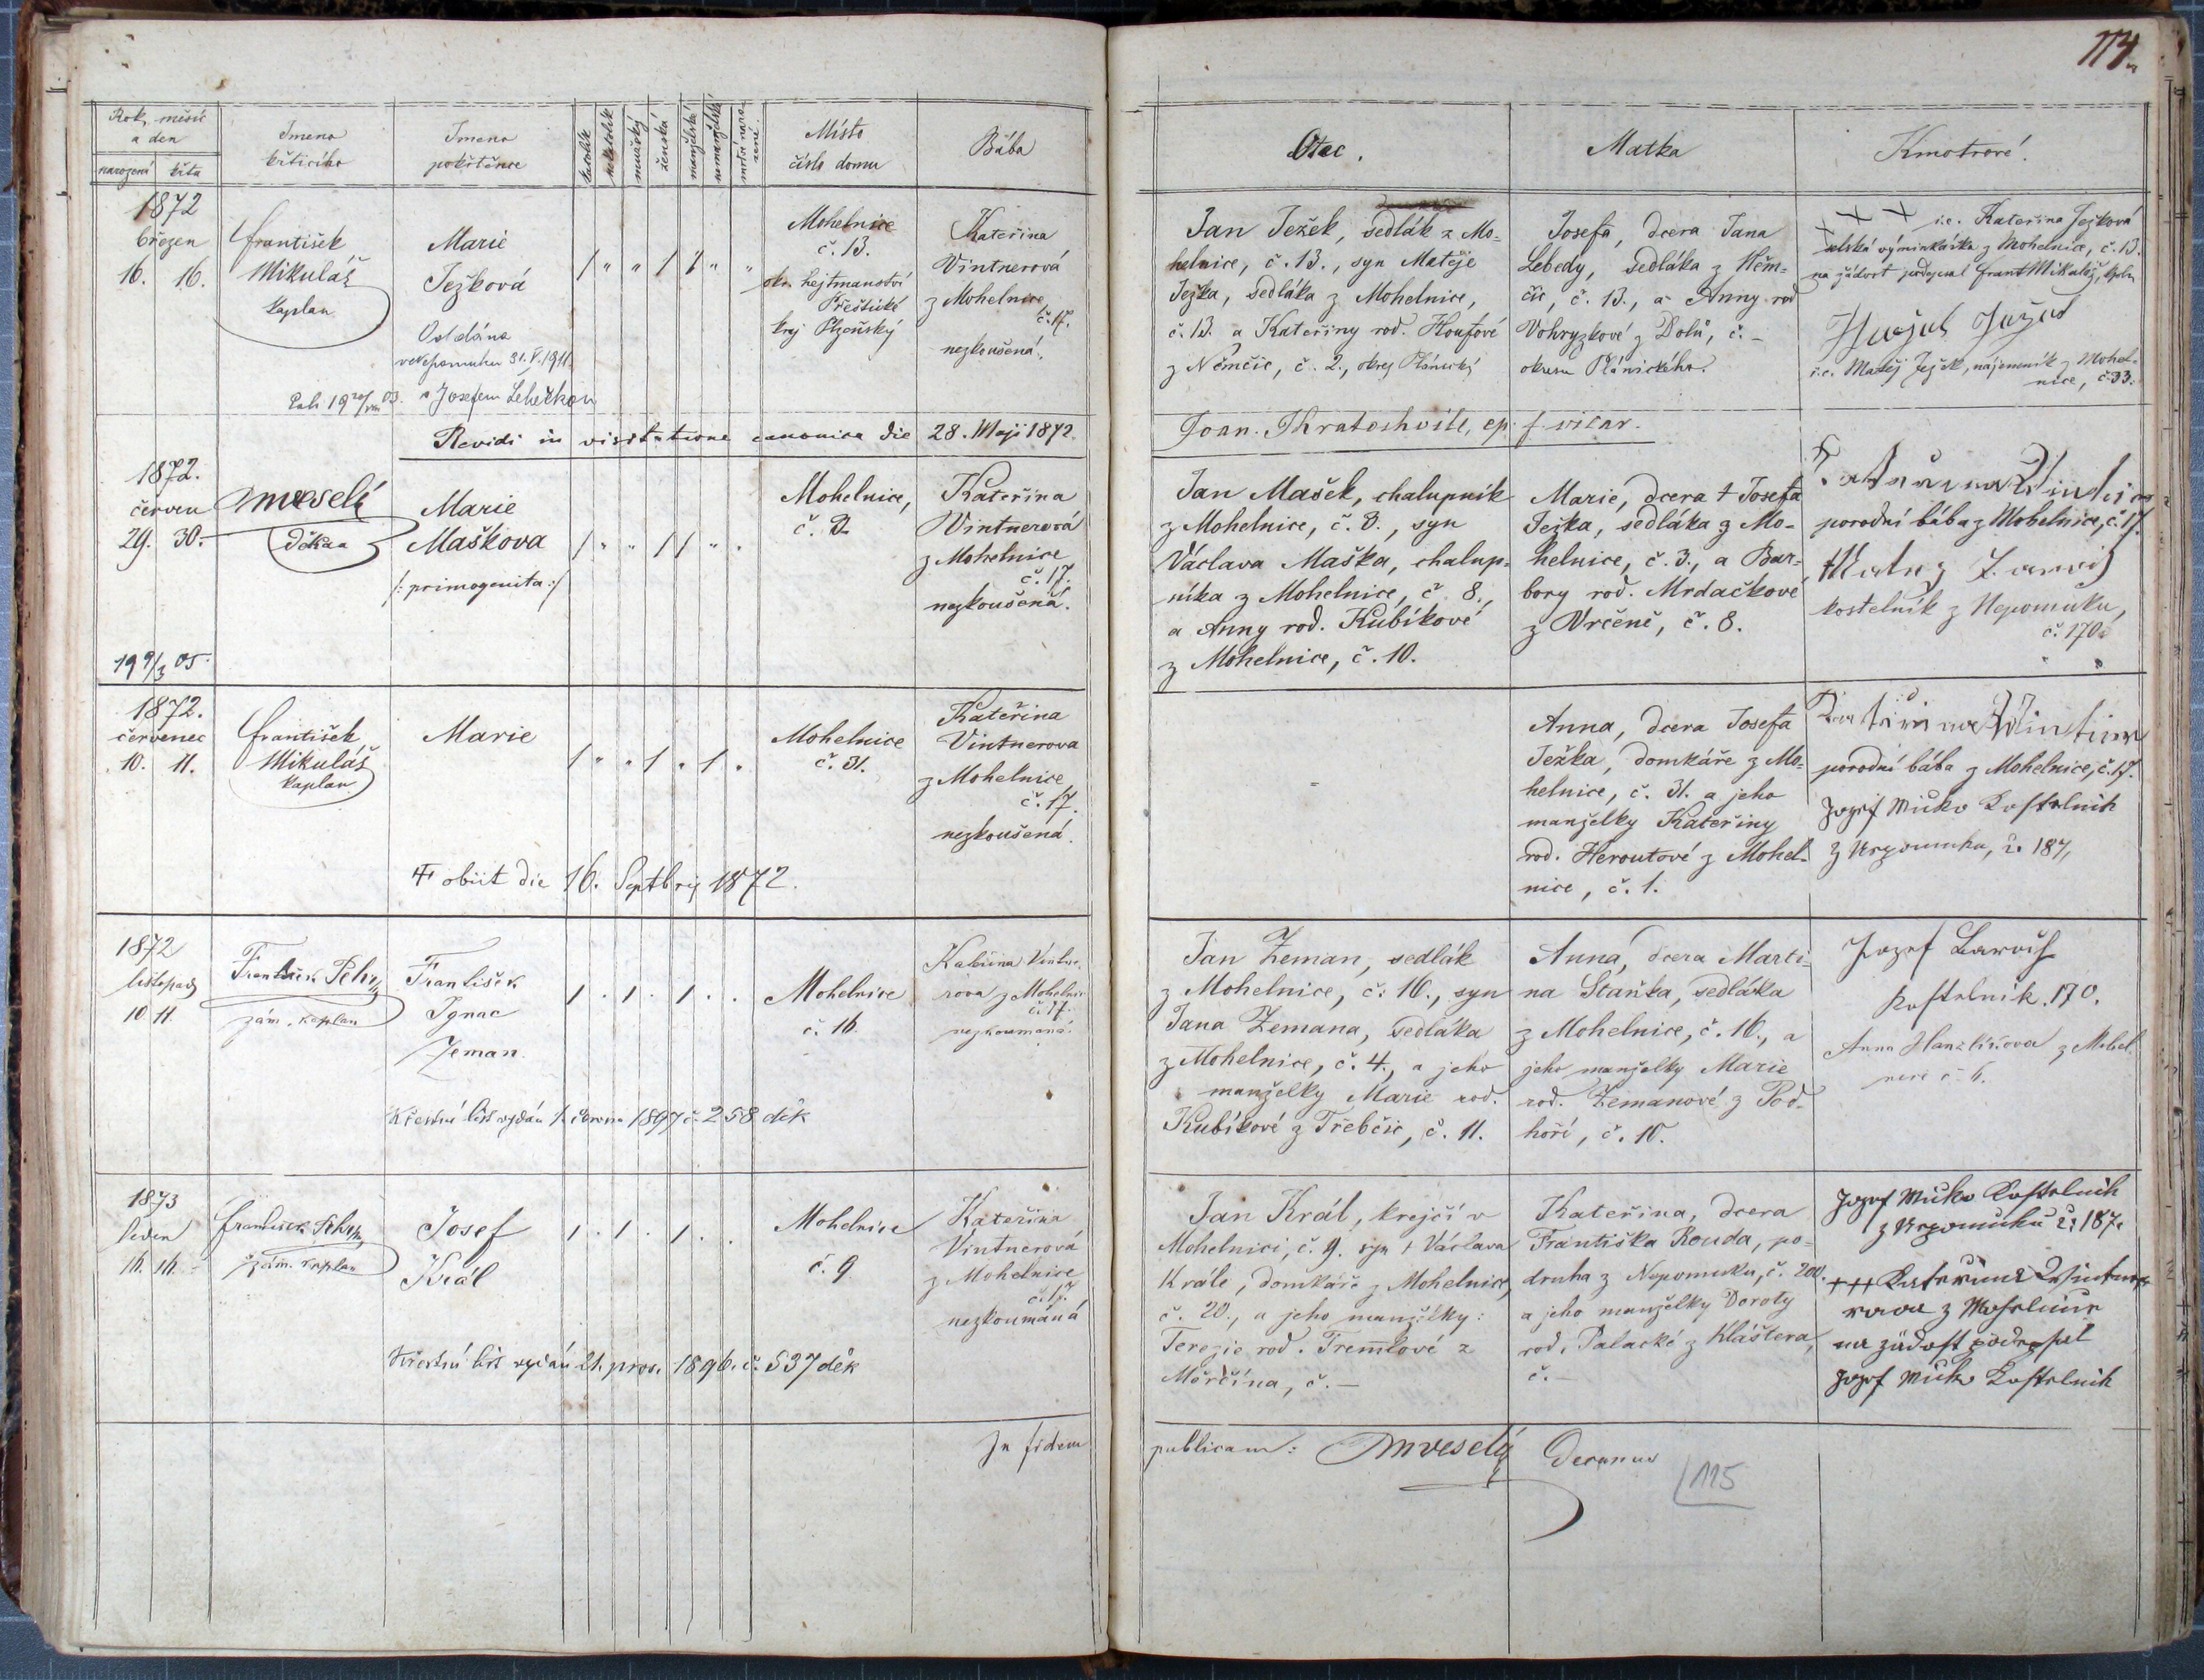 114.
Rok, měsíc
a den
narození křtu
Jmeno
křticího
Jmeno
pokřtěnce
katolík
nekatolík
mužský
ženská
manželské
nemanželské
mrtvě narozené
Místo
číslo domu
Bába
Otec.
Matka
Kmotrové.
1872
březen
16. 16.
František
Mikuláš
kaplan
Marie
Ježková
Oddána
v Nepomuku 31. V. 1911
s Josefem Lehečkou
/ " " / / " "
Mohelnice
č. 13.
okr. hejtmanství
Přeštické
kraj Plzeňský
Kateřina
Vintnerová
z Mohelnice,
č. 17.
nezkoušená.
Jan Ježek, sedlák z Mo-
helnice, č. 13., syn Matěje
Ježka, sedláka z Mohelnice,
č. 13. a Kateřiny rod. Houfové
z Němčic, č. 2., okres Plánický
Josefa, dcera Jana
Lebedy, sedláka z Něm-
čic, č. 13., a Anny rod
Vohryzkové z Dolů, č. –
okresu Plánického.
i.e. Kateřina Ježková
selská výminkářka z Mohelnice, č. 13.
na žádost podepsal Frant Mikuláš, kpln
i.e. Matěj Ježek, nájemník z Mohel-
nice, č. 33.
Revidi in visitatione canonica die 28. Maji 1872.
Joan. Kratochvile, ep. f. vicar.
1872.
červen
29. 30.
JmVeselý
děkan
Marie
Maškova
/: primogenita :/
/ " " / / " "
Mohelnice,
č. 8.
Kateřina
Vintnerová
z Mohelnice
č. 17.
nezkoušená.
Jan Mašek, chalupník
z Mohelnice, č. 8., syn
Václava Maška, chalup-
níka z Mohelnice, č. 8.,
a Anny rod. Kubíkové
z Mohelnice, č. 10.
Marie, dcera † Josefa
Ježka, sedláka z Mo-
helnice, č. 3., a Bar-
bory rod. Mrdačkové
z Vrčeně, č. 8.
porodní bába z Mohelnice, č. 17.
kostelník z Nepomuku,
č. 170.
19 9/3 05.
1872.
červenec
10. 11.
František
Mikuláš
kaplan
Marie
/ " " / " / "
Mohelnice
č. 31.
Kateřina
Vintnerova
z Mohelnice
č. 17.
nezkoušená.
Anna, dcera Josefa
Ježka, domkáře z Mo-
helnice, č. 31. a jeho
manželky Kateřiny
rod. Heroutové z Mohel-
nice, č. 1.
porodní bába z Mohelnice, č. 17.
Jozef Kostelník
z Nepomuku, č. 187,
† obiit die 16. Septbris 1872.
1872
listopad
10 11.
František
zám. kaplan
František
Ignac
Zeman
/ . / . / . .
Mohelnice
č. 16.
Kateřina Vintne-
rova z Mohelnic
č. 17.
nezkoumaná.
Jan Zeman, sedlák
z Mohelnice, č. 16., syn
Jana Zemana, sedláka
z Mohelnice, č. 4., a jeho
manželky Marie rod.
Kubíkové z Třebčic, č. 11.
Anna, dcera Marti-
na Staňka, sedláka
z Mohelnice, č. 16., a
jeho manželky Marie
rod. Zemanové z Pod-
hoří, č. 10.
Jozef
Kostelník. 170.
Anna Hanzlíkova z Mohel
nice č 6.
Křestní list vydán 1. června 1897 č. 258 děk
1873
leden
František
zám. kaplan
Josef
Král
/ . / . / . .
Mohelnice
č. 9
Kateřina
Vintnerová
z Mohelnice
č. 17.
nezkoumáná
Jan Král, krejčí v
Mohelnici, č. 9. syn † Václava
Krále, domkáře z Mohelnice,
č. 20., a jeho manželky:
Terezie rod. Tremlové z
Měrčína, č. –
Kateřina, dcera
Františka Rouda, po-
druha z Nepomuku, č. 200.
a jeho manželky Doroty
rod. Palacké z Kláštera,
č. –
Jozef Kostelník
z Nepomuku č. 187.
+++ Kateřina Vintne-
rova z Mohelnice
na žádost podepsal
Jozef Kostelník
Křestní list vydán 21. pros. 1896. č. 537 děk
In fidem publicam: JmVeselý Decanus
115